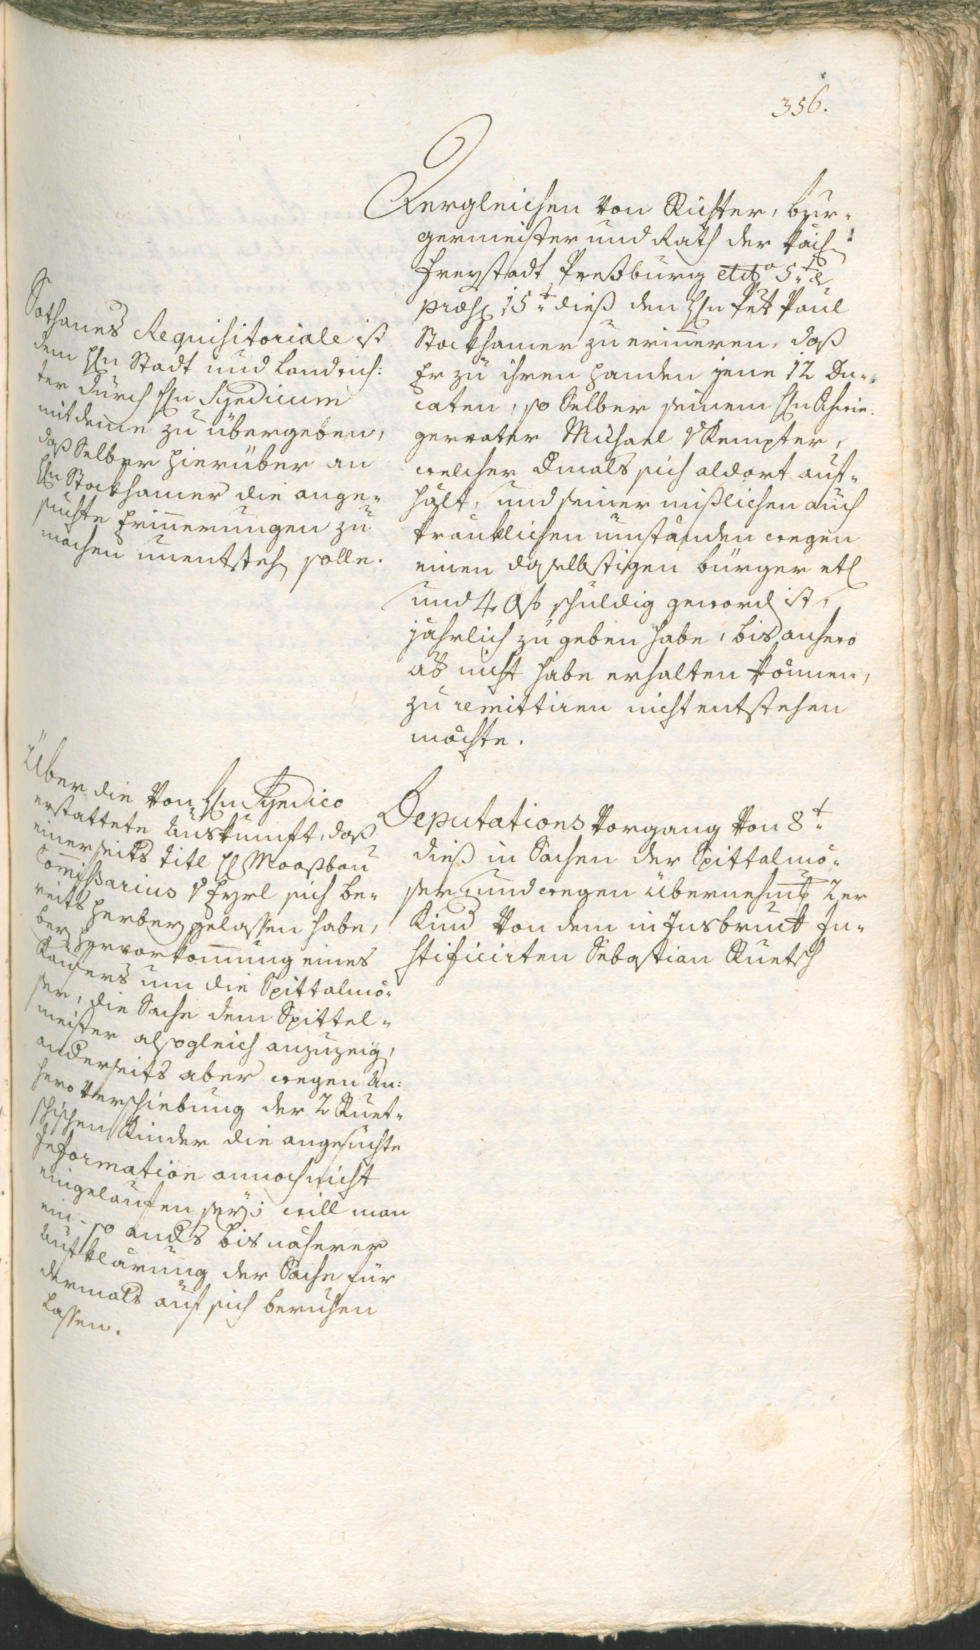 356.
Dergleichen von Richter, bur-
germeister und Rath der
Freystadt Preßburg 5t
præs 15t dieß den Hn Pet Paul
Stockhamer zu erinneren, daß
Er zu ihren handen jene 12 Du-
caten, so Selber seinem Hn Schwie-
gervater Michael Kempter,
welcher dmals sich aldort auf-
halt, und seiner mißlichen auch
kränklichen umständen wegen
einen daselbstigen bürger etl
und 40 schuldig geword ist,
jährlich zu geben habe, bis anhero
ab nicht habe erhalten können,
zu remittiren nicht entstehen
möchte.
Sothanes Requisitoriale ist
dem Hn Stadt und Landrich:
ter durch Hn Syndicum
mit deme zu übergeben,
daß Selber hierüber an
Hn Stockhamer die ange-
suchte Erinnerungen zu
machen unentsteh solle.
Deputations Vorgang von 8t
dieß in Sachen der Spittalmö-
ser und wegen übernehmb 2er
Kind von dem in Insbruck Ju-
stificirten Sebastian Ruetsch
Über die von Hn Syndico
erstattete Auskunft, daß
einerseits titl H Moosbau
Commissarius v Eyrl sich be-
reits herbey gelassen habe,
bey hervorkommung eines
Kaufers um die Spittalmö-
ser, die Sache dem Spittel-
meister alsogleich anzuzeig,
anderseits aber wegen An-
hero verschiebung der 2 Ruet-
schischen Kinder die angesuchte
Information annoch nicht
eingelaufen sey; will man
ein- so ands bis näherer
Aufklärung der Sache für
dermals auf sich beruhen
lassen.